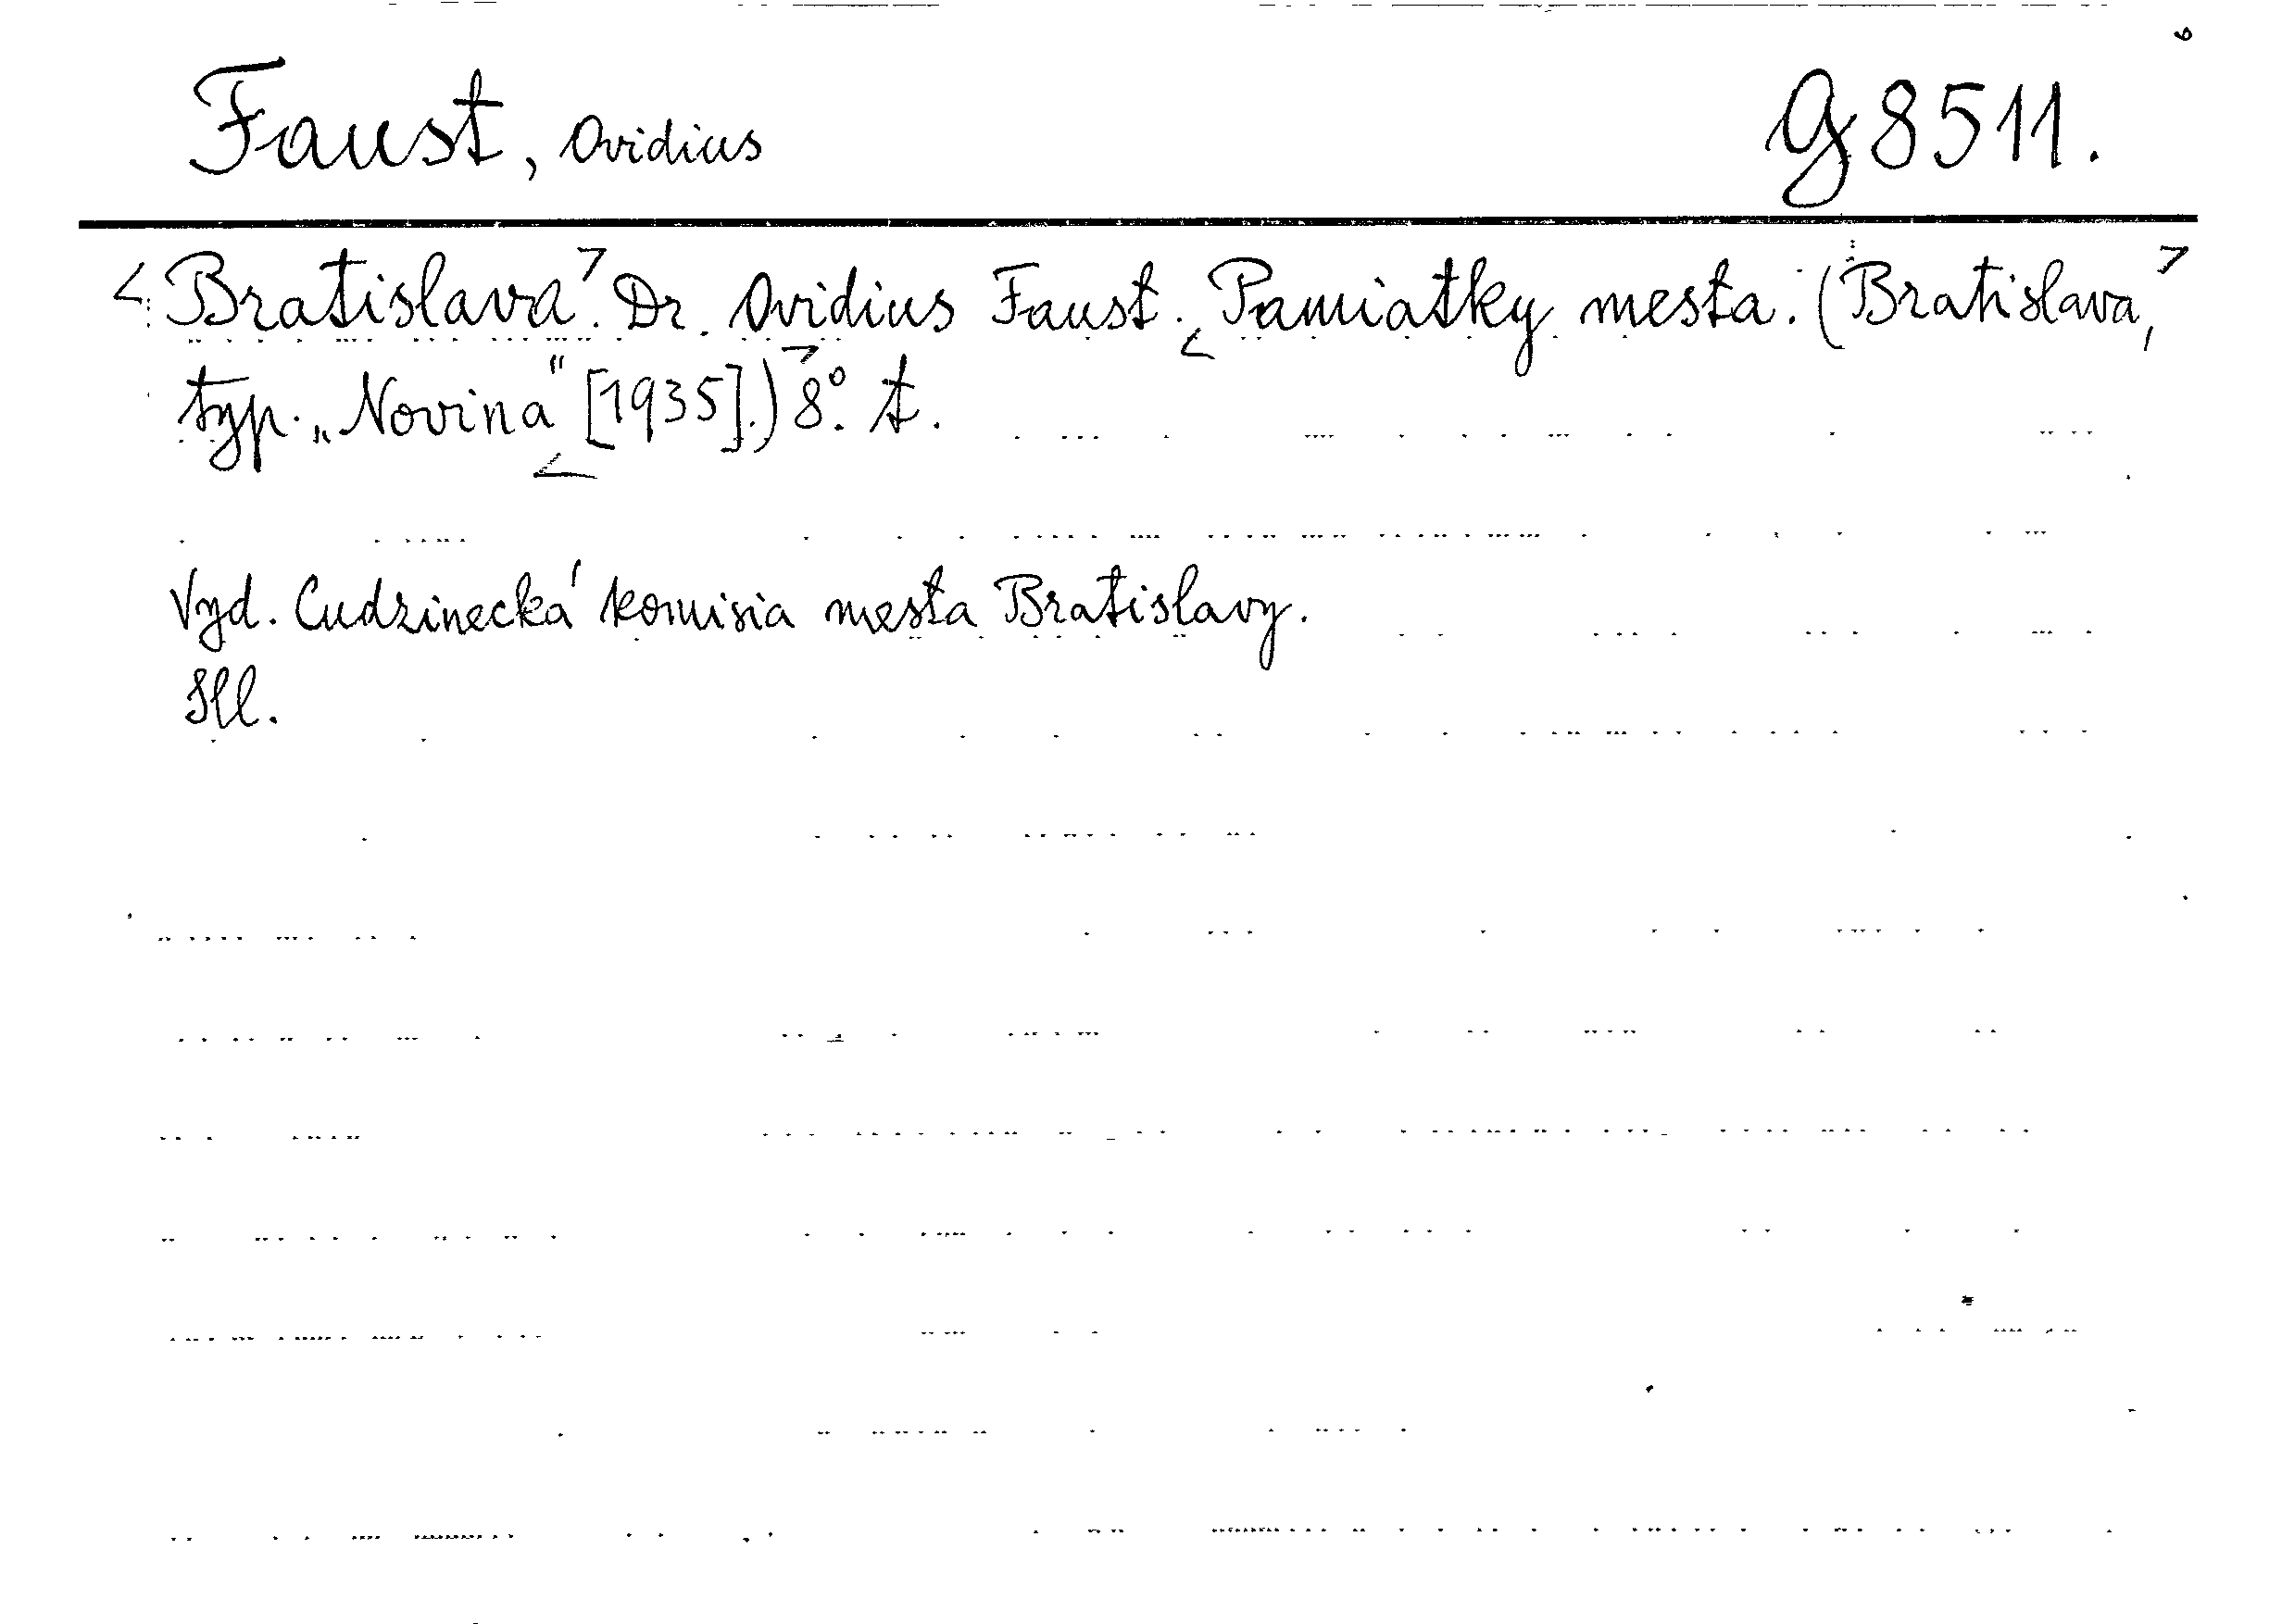 Faust, Ovidius G 8511.
<Bratislava>. Dr. Ovidius Faust. <Pamiatky mesta. (Bratislava,>
typ. „Novina“ <[1935].)> 8°. t.
Vyd. Cudzinecká komisia mesta Bratislavy.
Ill.